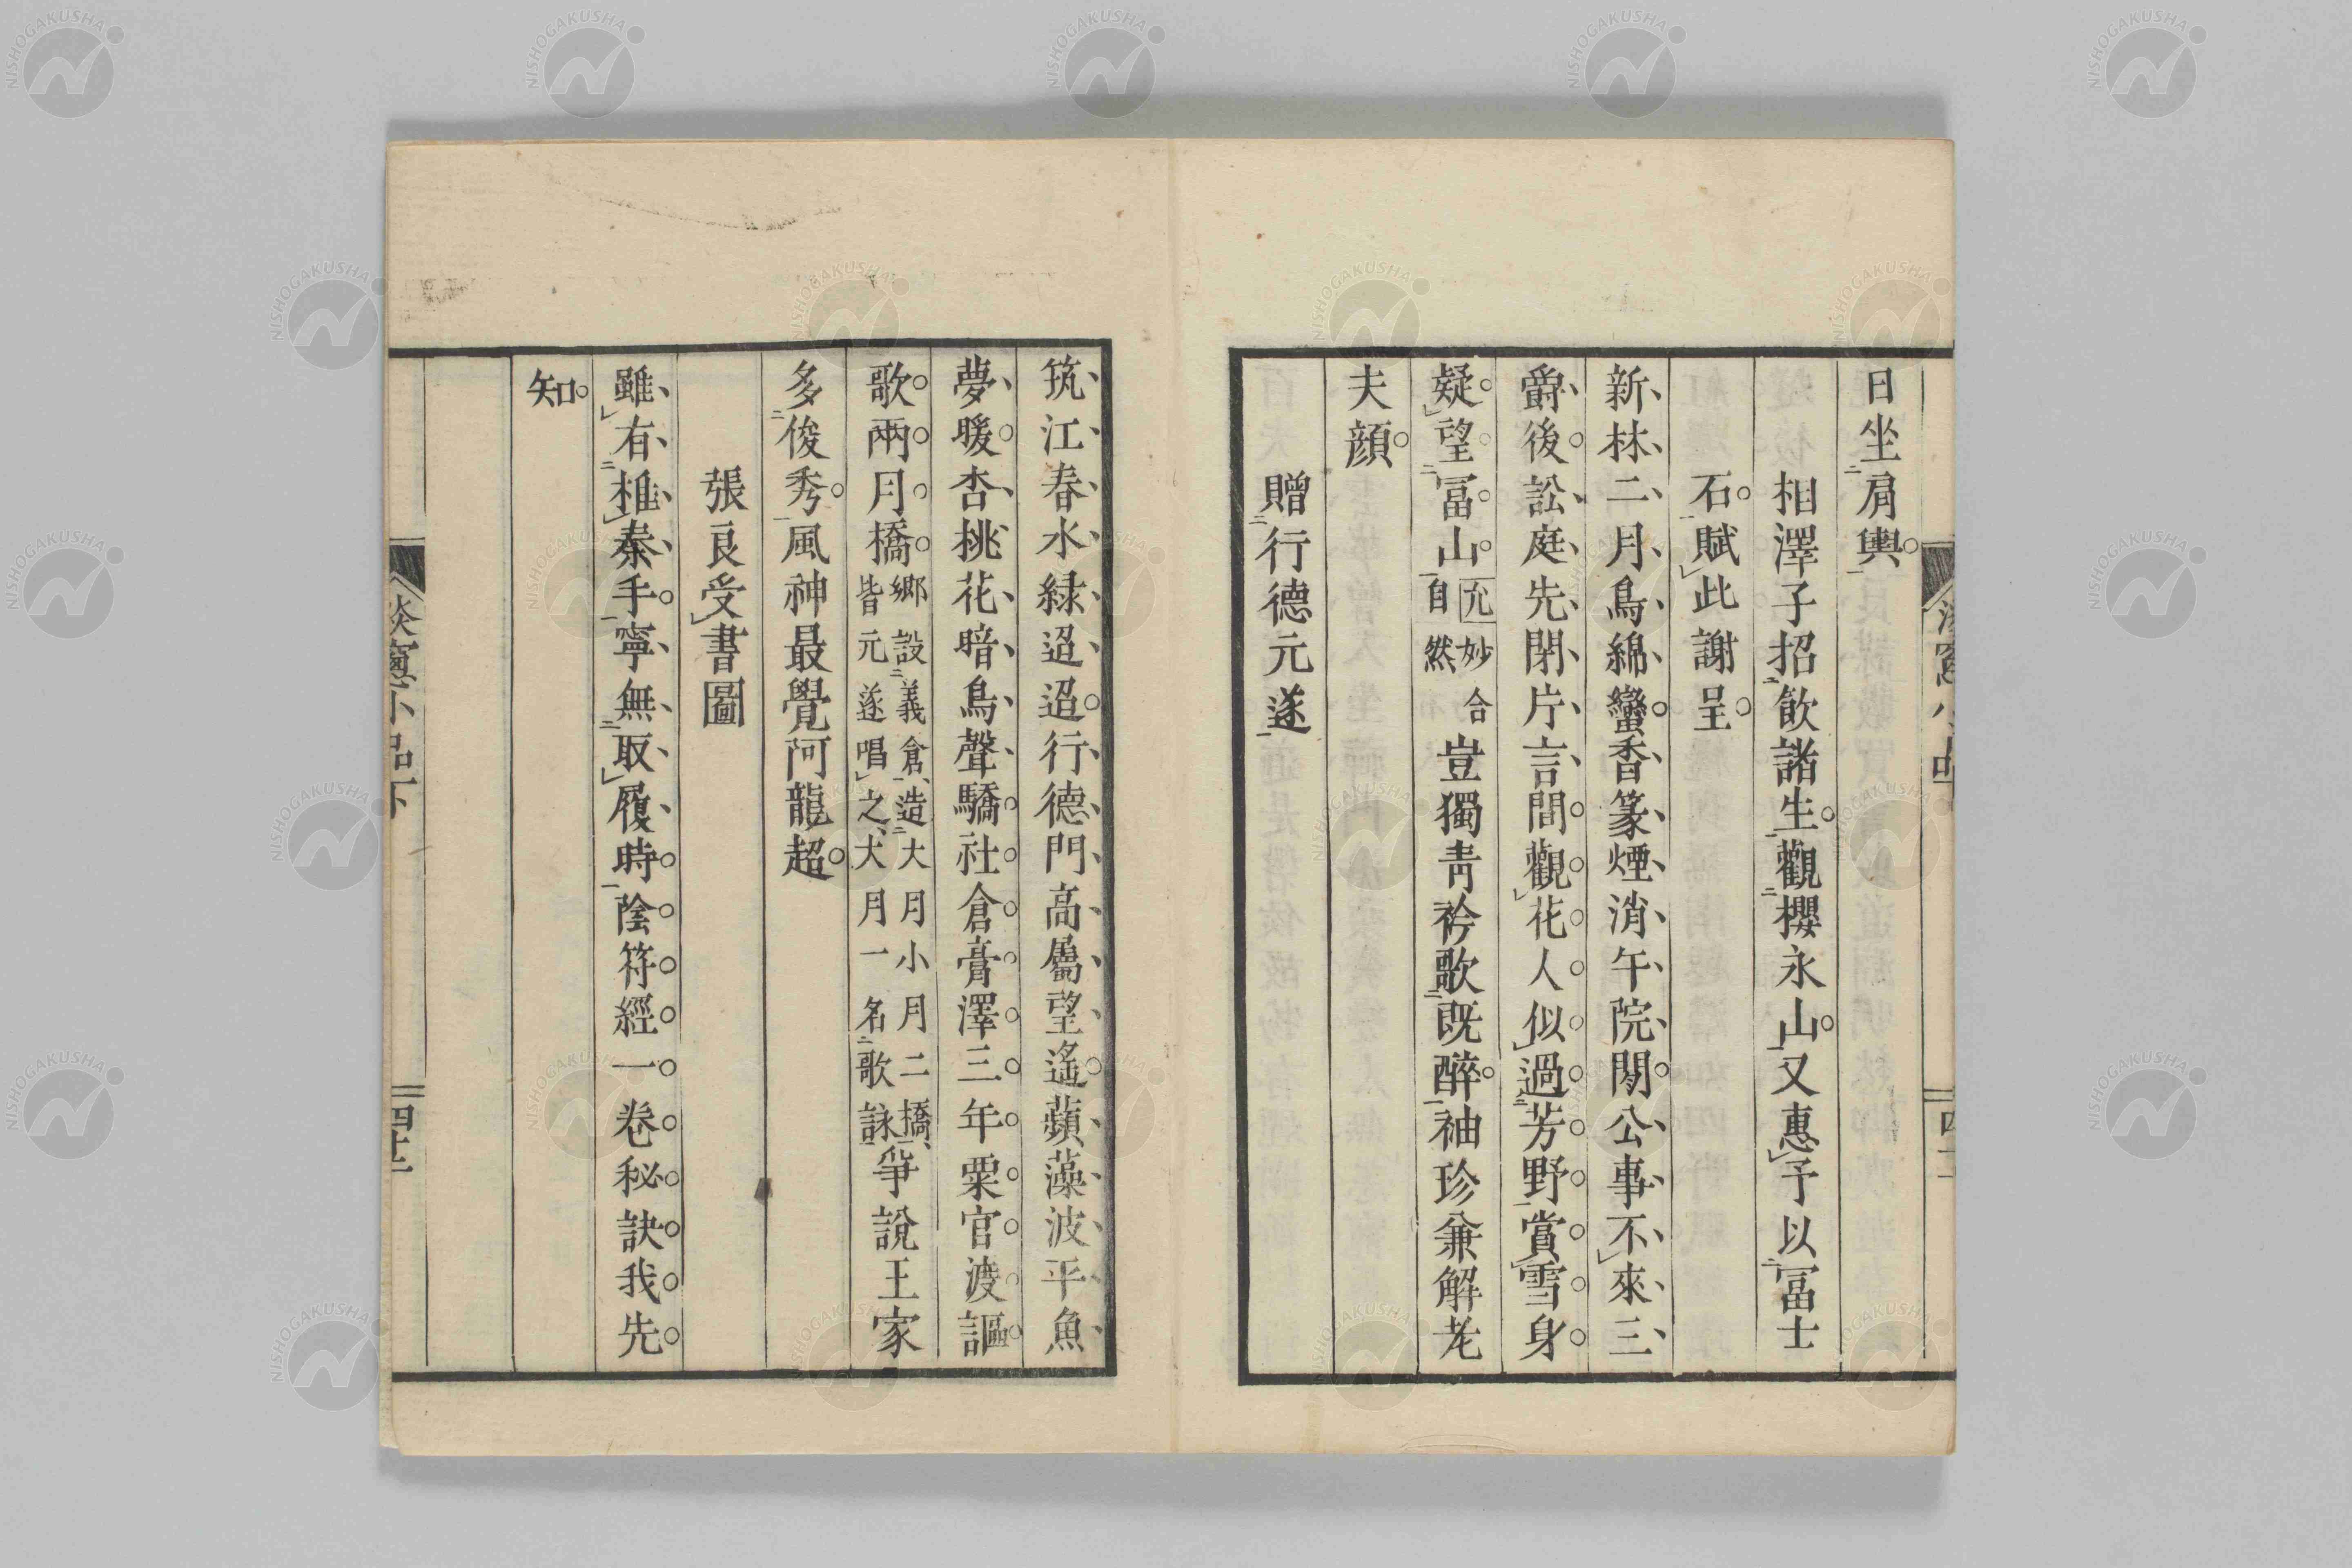 日坐肩輿
相澤子招飲諸生觀櫻永山又惠予以冨士
石賦此謝呈
新林二月鳥綿蠻香篆煙消午院閒公事不來三
爵後訟庭先閉片言間觀花人似過芳野賞雪身
疑望冨山允妙合自然豈獨靑衿歌既醉袖珍兼解老
夫顔
贈行德元遂
筑江春水綠迢迢行德門高屬望遙蘋藻波平魚
夢暖杏桃花暗鳥聲驕社倉膏澤三年粟官渡謳
歌兩月橋鄉設義倉造大月小月二橋皆元遂唱之大月一名歌詠爭說王家
多俊秀風神最覺阿龍超
張良受書圖
雖有椎秦手寧無取履時陰符經一卷秘訣我先
知
淡窗小品下
NISHOGAKUSHA